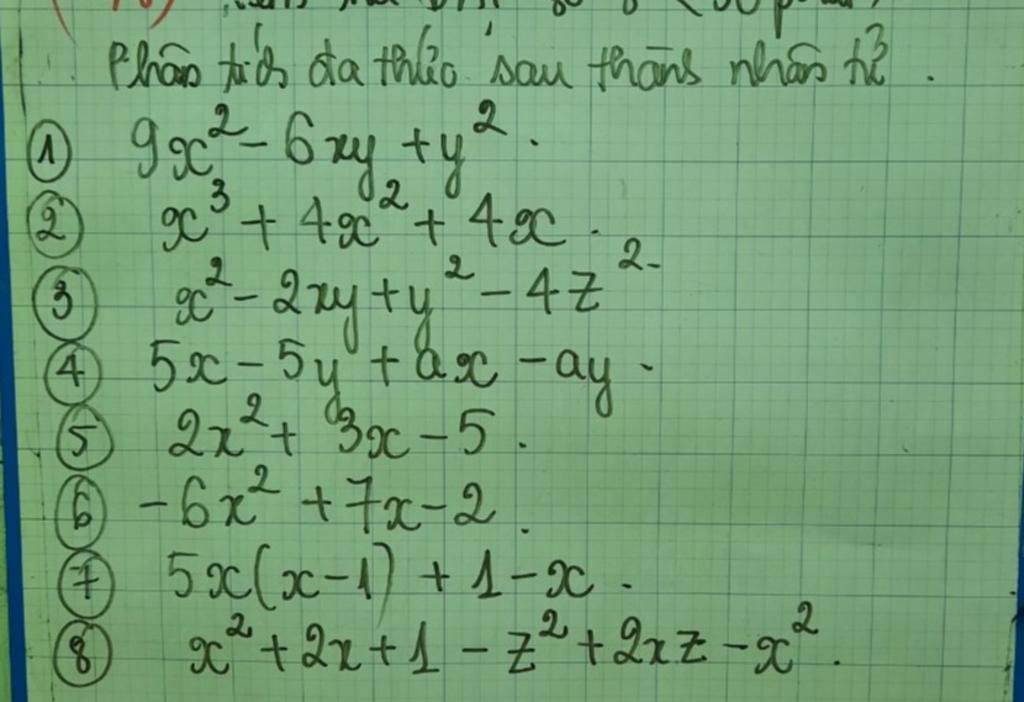 Phân tích đa thức sau thành nhân tử.
① 9x² - 6xy + y².
② x³ + 4x² + 4x.
③ x² - 2xy + y² - 4z²
④ 5x - 5y + ax - ay.
⑤ 2x² + 3x - 5.
⑥ -6x² + 7x - 2.
⑦ 5x(x-1) + 1 - x.
⑧ x² + 2x + 1 - z² + 2xz - x².